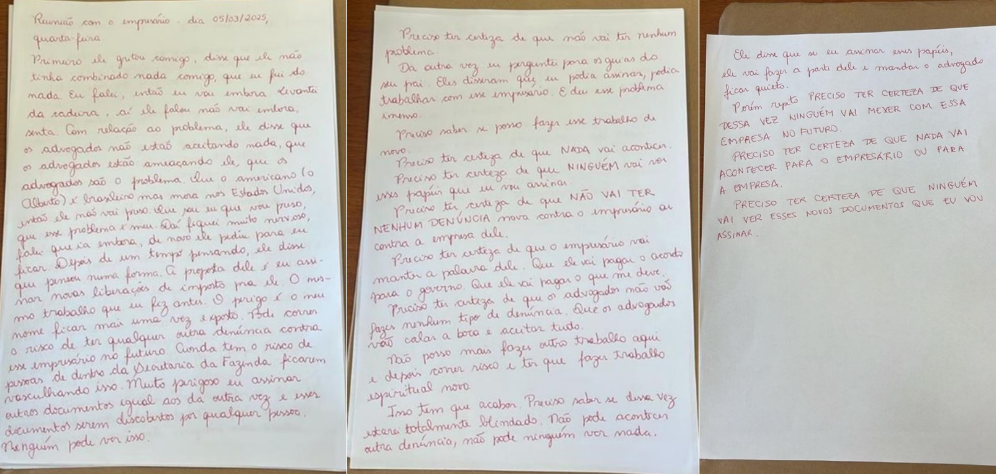 Reunião com o empresário - dia 05/03/2025,
quarta-feira.
Primeiro ele gritou comigo, disse que ele não
tinha combinado nada comigo, que eu fui do
nada. Eu falei, então eu vou embora. Levantei
da cadeira, aí ele falou não vai embora,
senta. Com relação ao problema, ele disse que
os advogados não estão aceitando nada, que
os advogados estão ameaçando ele, que os
advogados são o problema. Que o americano (o
Alberto) é brasileiro mas mora nos Estados Unidos,
então ele não vai preso. Que sou eu que vou preso,
que esse problema é meu. Daí fiquei muito nervoso,
falei que ia embora, de novo ele pediu para eu
ficar. Depois de um tempo pensando, ele disse
que pensou numa forma. A proposta dele é eu assi-
nar novas liberações de imposto pra ele. O mes-
mo trabalho que eu fiz antes. O perigo é o meu
nome ficar mais uma vez exposto. Pode correr
o risco de ter qualquer outra denúncia contra
esse empresário no futuro. Ainda tem o risco de
pessoas de dentro da Secretaria da Fazenda ficarem
vasculhando isso. Muito perigoso eu assinar
outros documentos igual aos da outra vez e esses
documentos serem descobertos por qualquer pessoa.
Ninguém pode ver isso.
Preciso ter certeza de que não vai ter nenhum
problema.
Da outra vez eu perguntei para os guias do
seu pai. Eles disseram que eu podia assinar, podia
trabalhar com esse empresário. E deu esse problema
imenso.
Preciso saber se posso fazer esse trabalho de
novo.
Preciso ter certeza de que NADA vai acontecer.
Preciso ter certeza de que NINGUÉM vai ver
esses papéis que eu vou assinar.
Preciso ter certeza de que NÃO VAI TER
NENHUM DENÚNCIA nova contra o empresário ou
contra a empresa dele.
Preciso ter certeza de que o empresário vai
manter a palavra dele. Que ele vai pagar o acordo
para o governo. Que ele vai pagar o que me deve.
Preciso ter certeza de que os advogados não vão
fazer nenhum tipo de denúncia. Que os advogados
vão calar a boca e aceitar tudo.
Não posso mais fazer outro trabalho aqui
e depois correr risco e ter que fazer trabalho
espiritual novo.
Isso tem que acabar. Preciso saber se dessa vez
estarei totalmente blindado. Não pode acontecer
outra denúncia, não pode ninguém ver nada.
Ele disse que se eu assinar esses papéis,
ele vai fazer a parte dele e mandar o advogado
ficar quieto.
Porém repito PRECISO TER CERTEZA DE QUE
DESSA VEZ NINGUÉM VAI MEXER COM ESSA
EMPRESA NO FUTURO.
PRECISO TER CERTEZA DE QUE NADA VAI
ACONTECER PARA O EMPRESÁRIO OU PARA
A EMPRESA.
PRECISO TER CERTEZA DE QUE NINGUÉM
VAI VER ESSES NOVOS DOCUMENTOS QUE EU VOU
ASSINAR.